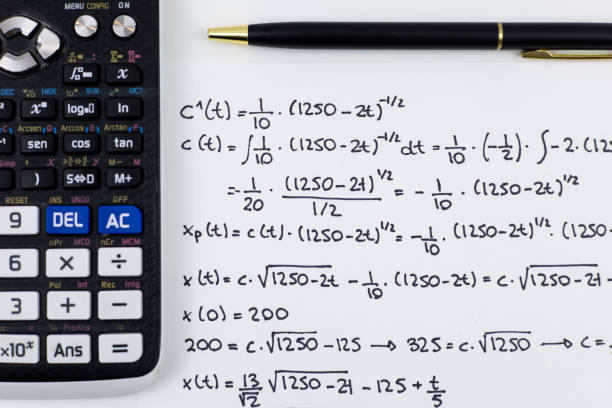 MENU CONFIG ON
DEC HEX BIN OCT
x■ log■□ ln
Arcsen D Arccos E Arctan F
sen cos tan
M- M
) S⇔D M+
RESET INS UNDO OFF
9 DEL AC
nPr MCD nCr MCM
6 × ÷
Pol Int Rec Intg
3 + −
PreAns
×10ˣ Ans =
C'(t) = 1/10 · (1250 − 2t)^(-1/2)
c(t) = ∫ 1/10 · (1250 − 2t)^(-1/2) dt = 1/10 · (−1/2) · ∫ −2 · (12
= −1/20 · (1250 − 2t)^(1/2) / (1/2) = − 1/10 · (1250 − 2t)^(1/2)
xₚ(t) = c(t) · (1250 − 2t)^(1/2) = − 1/10 · (1250 − 2t)^(1/2) · (1250 −
x(t) = c · √(1250 − 2t) − 1/10 · (1250 − 2t) = c · √(1250 − 2t) −
x(0) = 200
200 = c · √1250 − 125 → 325 = c · √1250 → c =
x(t) = 13/√2 √(1250 − 2t) − 125 + t/5